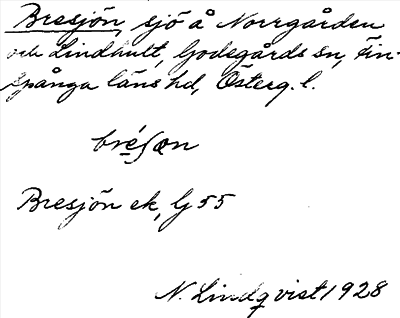 Bresjön, sjö å Norrgården
och Lindhult, Godegårds sn, Fin-
spånga läns hd, Österg. l.
bréſœn
Bresjön ek, G 55
N. Lindqvist 1928